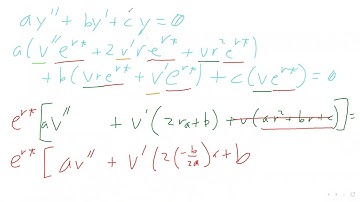 ay'' + by' + cy = 0
a(v''e^{rt} + 2v're^{rt} + vr²e^{rt})
+ b(vre^{rt} + v'e^{rt}) + c(ve^{rt}) = 0
e^{rt}[av'' + v'(2ra+b) + v(ar²+br+c)] =
e^{rt}[av'' + v'(2(-b/2a)a + b